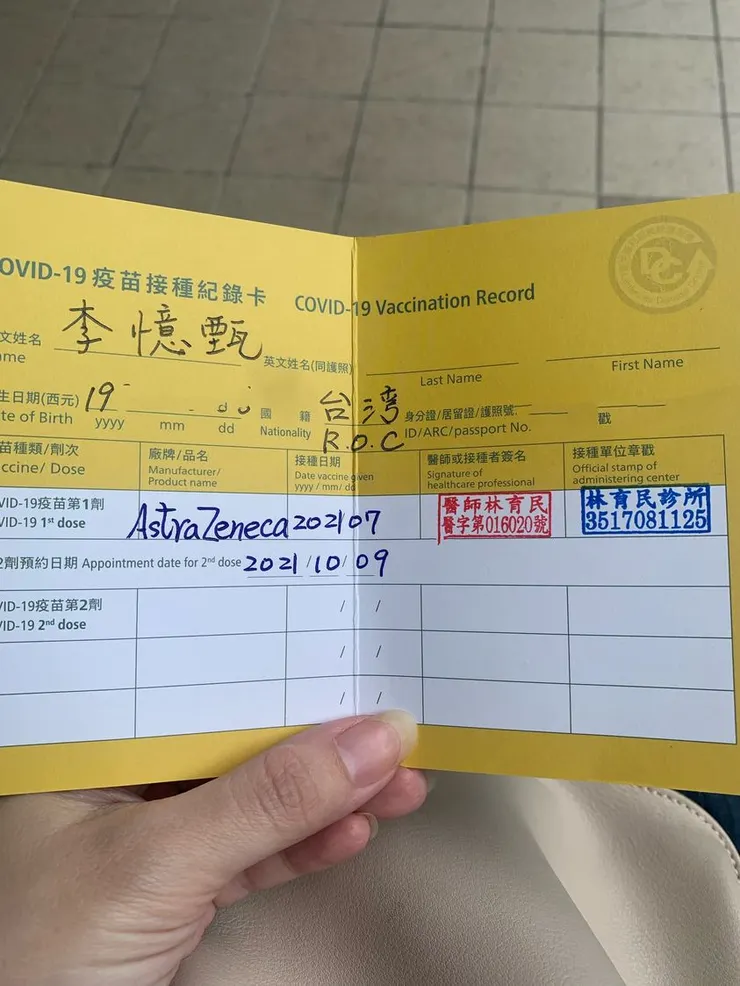 OVID-19 疫苗接種紀錄卡 COVID-19 Vaccination Record
文姓名 李憶甄 英文姓名(同護照)
ame Last Name First Name
生日期(西元) 19 國籍 台灣 身分證/居留證/護照號: 戳
te of Birth yyyy mm dd Nationality R.O.C ID/ARC/passport No.
苗種類/劑次 廠牌/品名 接種日期 醫師或接種者簽名 接種單位章戳
ccine/ Dose Manufacturer/ Product name Date vaccine given yyyy / mm / dd Signature of healthcare professional Official stamp of administering center
VID-19疫苗第1劑 醫師林育民 林育民診所
VID-19 1st dose AstraZeneca 202107 醫字第016020號 3517081125
2劑預約日期 Appointment date for 2nd dose 2021/10/09
VID-19疫苗第2劑 / /
VID-19 2nd dose
/ /
/ /